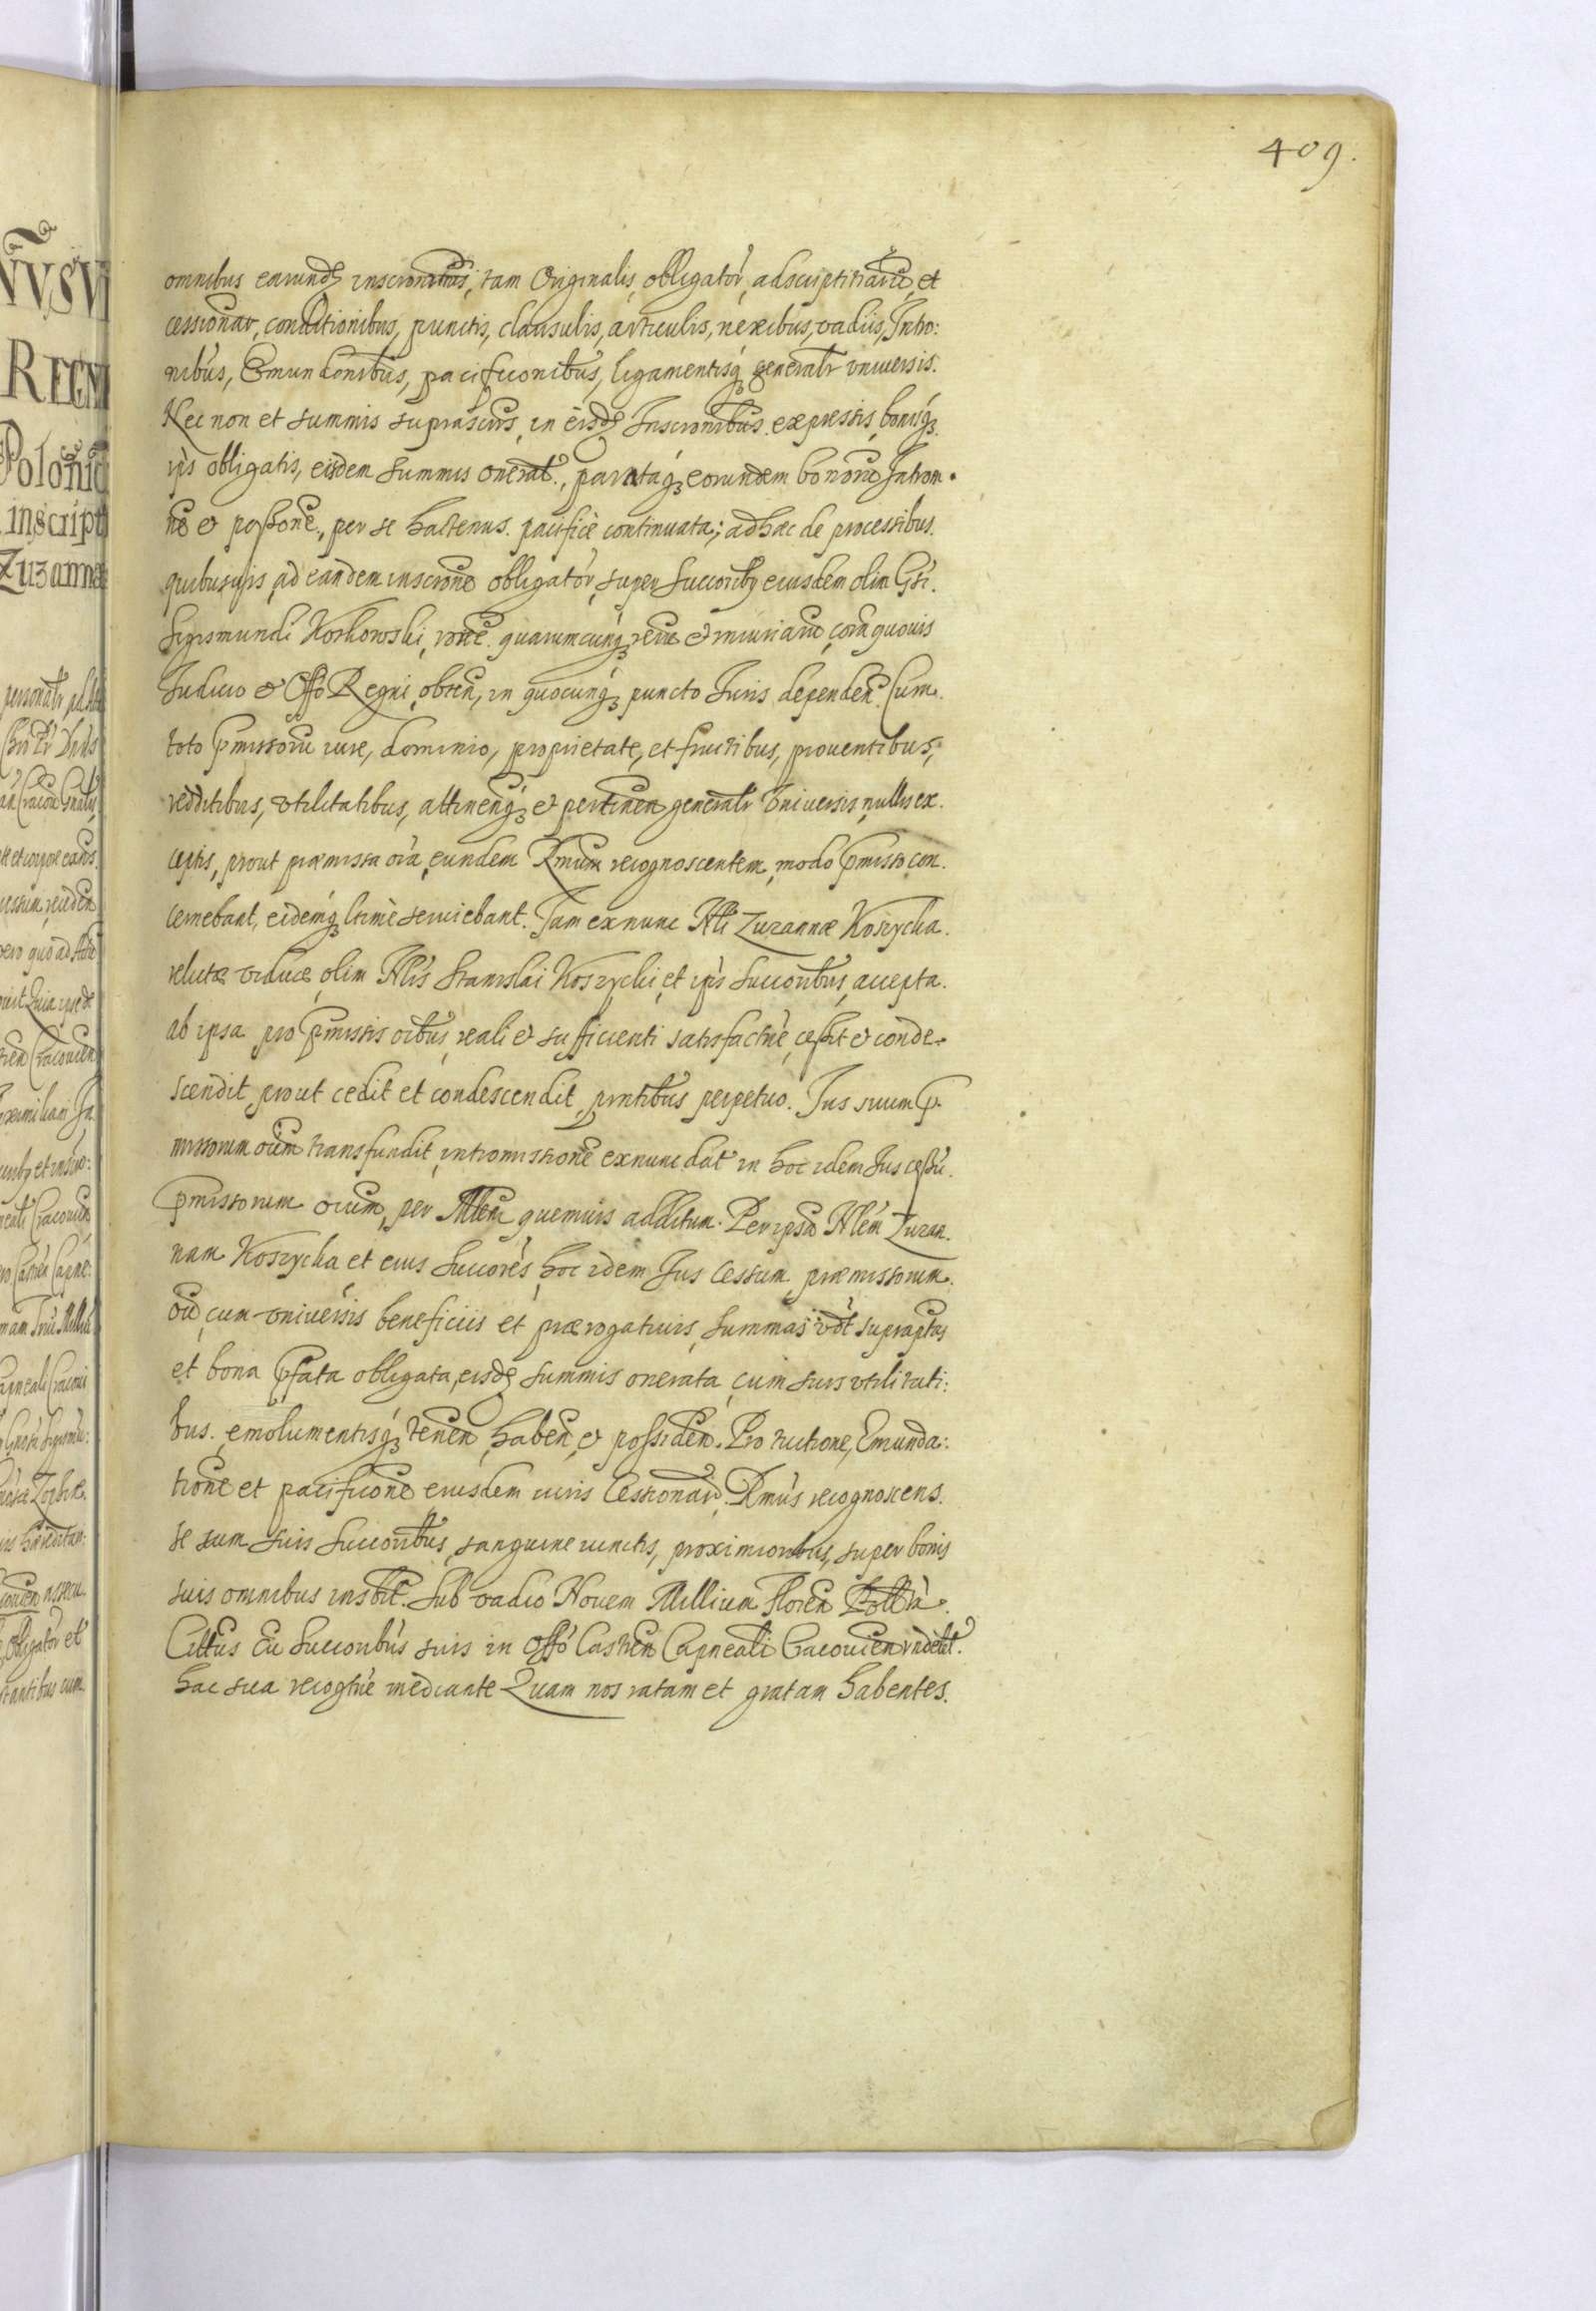 409.
omnibus earund inscrōnibus, tam Originalis, obligator, adscriptitiarū, et
cessionar, conditionibus, punctis, clausulis, articulis, nexibus, vadiis, Intro:
nibus, Emundonibus, pacificonibus, ligamentisq generatr vniuersis.
Nec non et summis suprascris, in eisd Inscronibus expressis, bonisq
ijs obligatis, eisdem summis onerat., parataq eorundem bonorū Introm.
nē & possonē, per se hactenus pacificè continuata; ad haec de processibus
quibusuis, ad eandem inscronē obligator, super Succorib eiusdem olim Gsi.
Sigismundi Korkowski, rōne quarumcunq rerū & iniuriarū, corā quouis
Iudicio & Offo Regni, obten, in quocunq puncto Iuris dependen Cum
toto pmissorū iure, dominio, proprietate, et fructibus, prouentibus,
redditibus, vtilitatibus, attinenq & pertinen generatr Vniuersis, nullis ex.
ceptis, prout praemissa oīa, eundem Rmum recognoscentem, modo pmisso con.
cernebant, eidemq ltimè seruiebant. Iam ex nunc Nli Zuzannae Koszycka.
relictae viduae, olim Nlis Stanislai Koszycki, et ipīs Succoribus, accepta.
ab ipsa pro pmissis oībus, reali & sufficienti satisfactne, cessit & conde.
scendit, prout cedit et condescendit, pntibus perpetuo. Ius suum p.
missorum oium transfundit, intromissionē ex nunc dat in hoc idem Ius cessū.
pmissorum oium, per Mlem quemuis additum. Per ipsā Nlem Zuzan.
nam Koszycka et eius Succores, hoc idem Ius Cessum praemissorum.
oiū, cum vniuersis beneficiis et praerogatiuis, summas vdt supraptas
et bona pfata obligata, eisd summis onerata, cum suis vtilitati:
bus. emolumentisq tenen, haben, & possiden. Pro tuitione, Emunda:
tione et pacificone eiusdem iuris Cessionar, Rmus recognoscens.
se cum suis Succoribus, sanguine iunctis, proximioribus, super bonis
suis omnibus insbit. Sub vadio Nouem Millium Floren
Cittus Eii Succoribus suis in Offo Castren Capneali Cracouien rndebit.
hac sua recogtne mediante Quam nos ratam et gratam habentes.